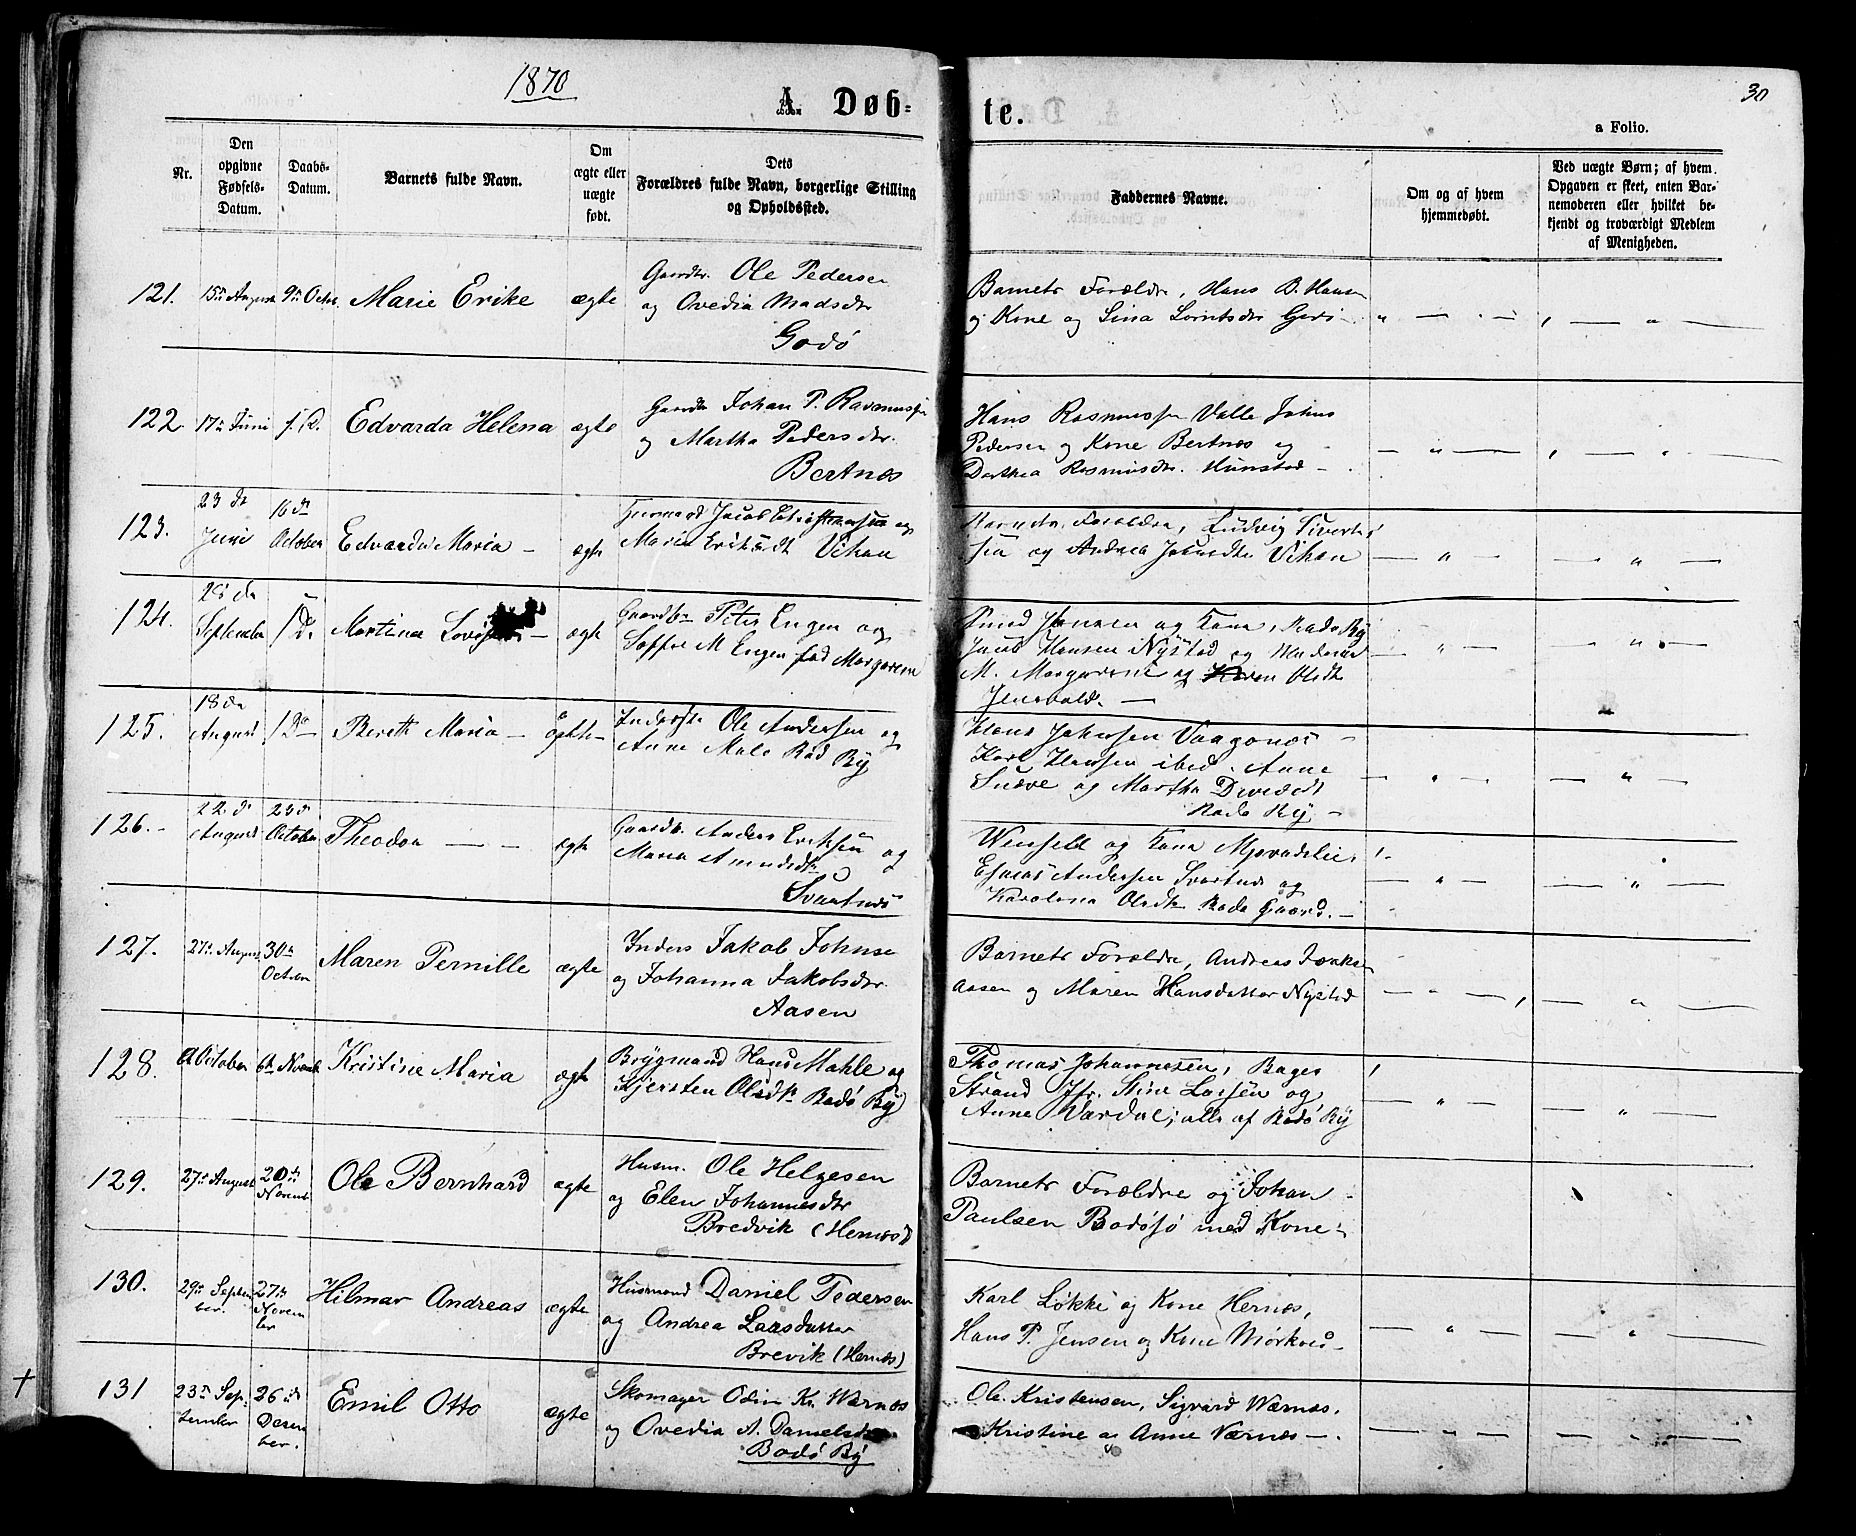 1870
A. Døb-
te.
30
a Folio.
Nr.
Den
opgivne
Fødsels-
Datum.
Daabs-
Datum.
Barnets fulde Navn.
Om
ægte eller
uægte
født.
Dets
Forældres fulde Navn, borgerlige Stilling
og Opholdssted.
Faddernes Navne.
Om og af hvem
hjemmedøbt.
Ved uægte Børn; af hvem
Opgaven er skeet, enten Bar-
nemoderen eller hvilket be-
kjendt og troværdigt Medlem
af Menigheden.
121. 15de August 9de Octbr. Marie Erike ægte
Gaardbr. Ole Pedersen
og Ovedia Madsdtr
Godø
Barnets Forældre, Hans B. Hansen
og Kone og Sina Lorntsdtr Godø
122. 17de Juni f. D. Edvarda Helena ægte
Gaardbr Johan P. Rasmussen
og Martha Pedersdtr.
Bertnæs
Hans Rasmussen Valle Johns
Pedersen og Kone Bertnæs og
Dorthea Rasmusdtr. Hunstad
123. 23de
Juni
16de
October Edvarda Maria ægte
Huusmand Jacob Christophersen og
Maria Eriksdt Vikan
Barnets Forældre, Ludvig Sivert-
sen og Andrea Jakobsdtr Vikan
124.
September
Martina ægte
Gaardbr Peter Engen og
Soffie M Engen fød Morgaren
Jensen og Kone, Bodø By
Jacob Hansen Nystad og
M. og Karen Olsdt
Jensvold.
125. 18de
August
Bereth Maria ægte
Inderste Ole Andersen og
Anne Bodø By
Hans Johnsen Vaagønes
Karl Hansen ibid. Anne
og Martha
Bodø By
126. 22de
August 23de
October Theodor ægte
Gaardbr. Anders Eriksen og
Maria
Svartnæs
og Kone
Andersen Svartnæs og
Karolina Olsdtr Bodø Gaard.
127. 27de August 30te
October Maren Pernille ægte
Inders Jakob Johnsen
og Johanna Jakobsdtr.
Aasen
Barnets Forældre, Andreas
Aasen og Maren Hansdatter Nystad
128. October 6te Novemb Kristine Maria ægte
Brygmand Hans Mahle og
Kjersten Olsdtr Bodø By
Thomas Johannesen, Bager
Strand Jfr. Stine Larsen og
Anne Værdal; alle af Bodø By
129. 27de August 20de
Novemb Ole Bernhard ægte
Husm. Ole Helgesen
og Elen Johannesdtr
Bredvik (Hernæs)
Barnets Forældre og Johan
Paulsen Bodøsjø med Kone
130. 29de Septem
ber. 27de
Novem
ber Hilmar Andreas ægte
Husmand Daniel Pedersen
og Andrea Larsdatter
Brevik (Hernæs)
Karl Løkke og Kone Hernæs,
Hans P. Jensen og Kone Mørkved
131 23de Sep-
tember 26de
Decem
ber. Emil Otto ægte
Skomager Odin Kr. Wærnæs
og Ovedia A. Danielsdtr
Bodø By
Ole Kristensen, Sigvard Wærnæs.
Kristine og Anne Værnæs